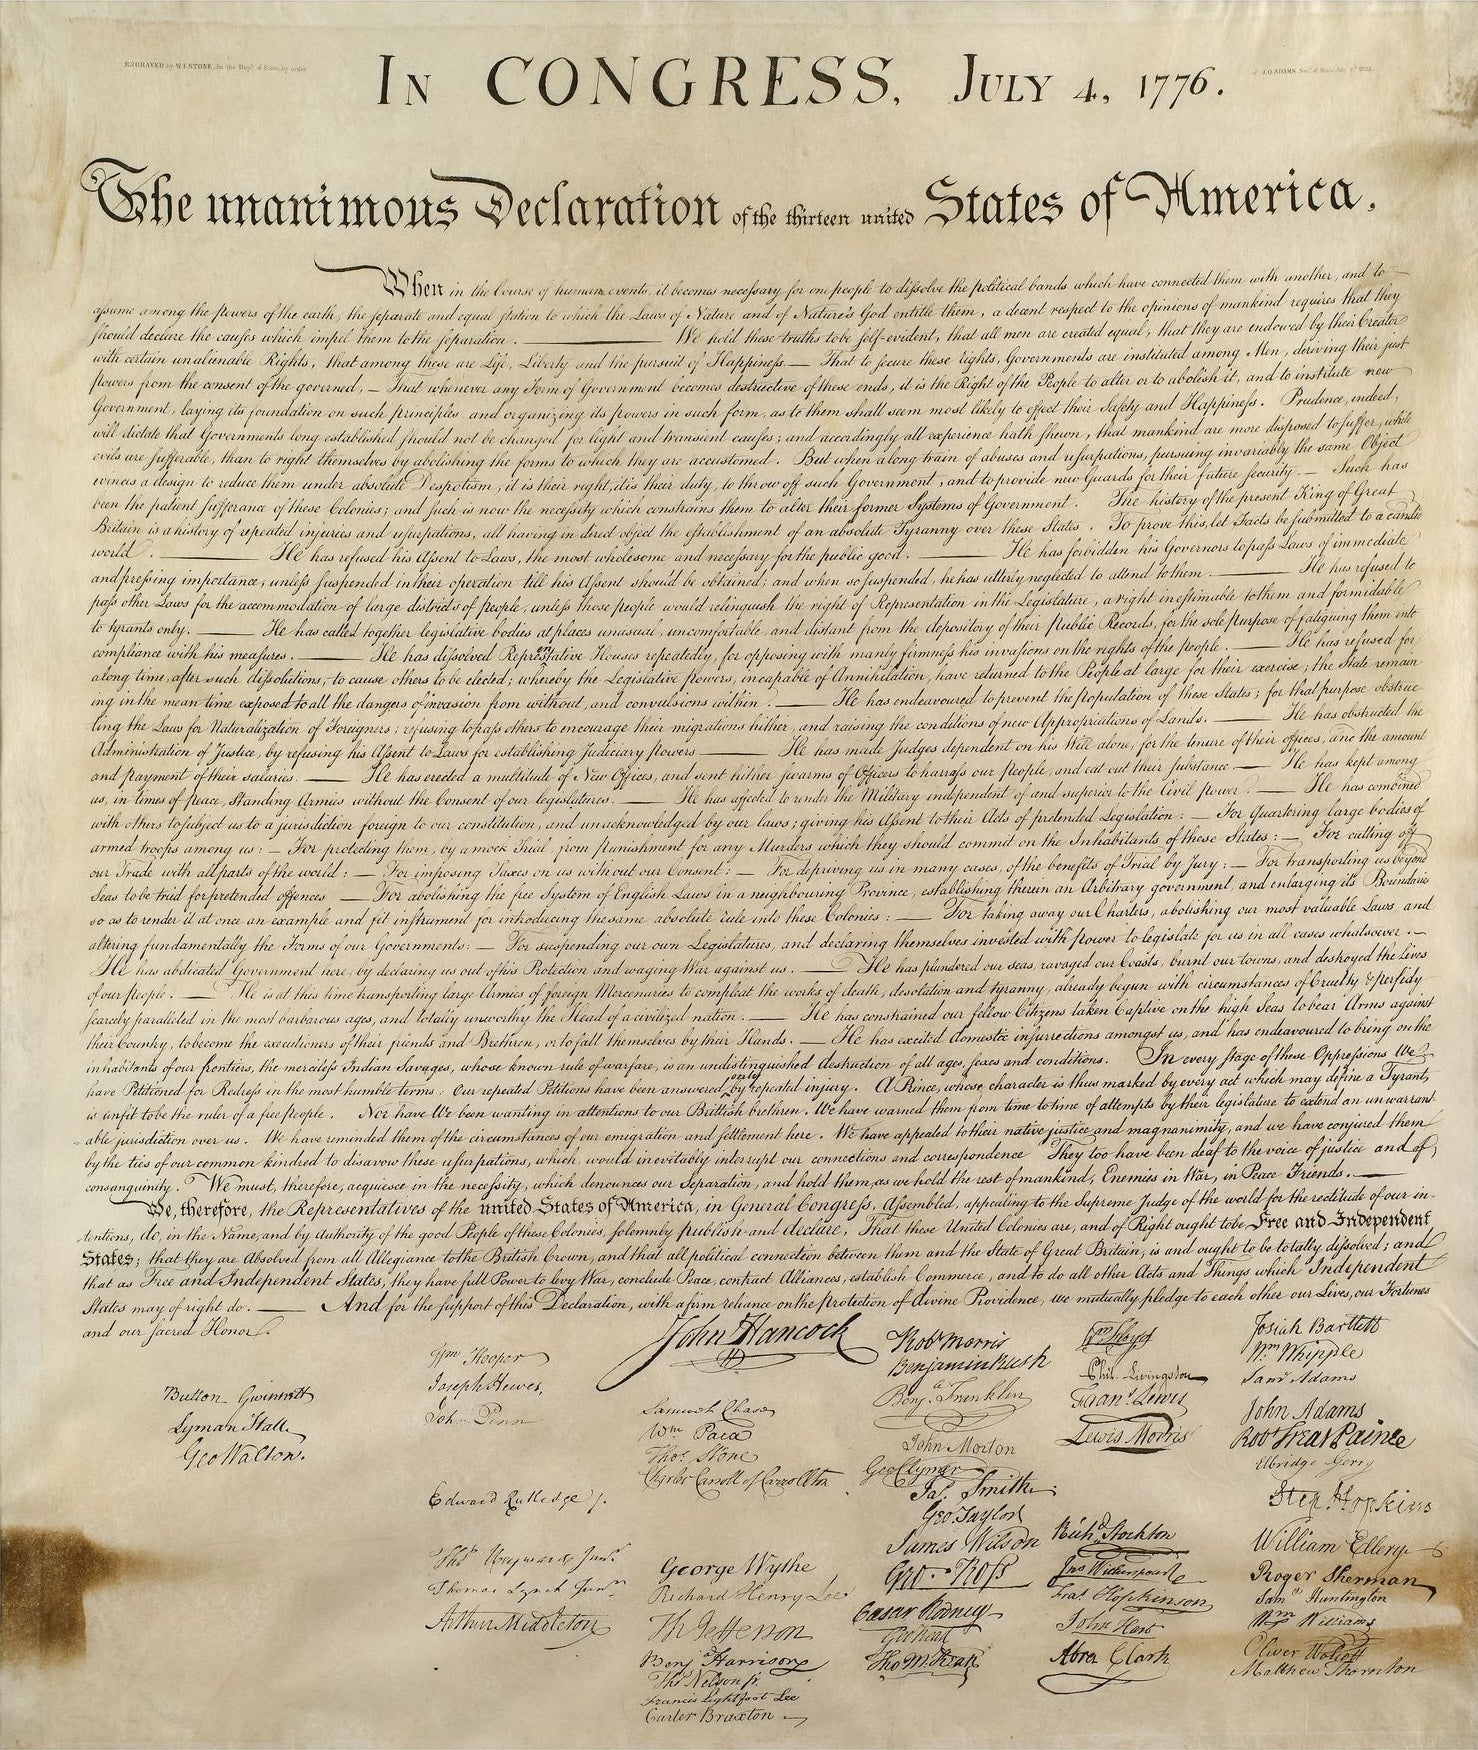 ENGRAVED by W.I.STONE, for the Dept. of State, by order
of J.Q.ADAMS Sec. of State, July 4th 1823.
IN CONGRESS, JULY 4, 1776.
The unanimous Declaration of the thirteen united States of America.
When in the Course of human events, it becomes necessary for one people to dissolve the political bands which have connected them with another, and to
assume among the powers of the earth, the separate and equal station to which the Laws of Nature and of Nature's God entitle them, a decent respect to the opinions of mankind requires that they
should declare the causes which impel them to the separation. ——— We hold these truths to be self-evident, that all men are created equal, that they are endowed by their Creator
with certain unalienable Rights, that among these are Life, Liberty and the pursuit of Happiness.— That to secure these rights, Governments are instituted among Men, deriving their just
powers from the consent of the governed, — That whenever any Form of Government becomes destructive of these ends, it is the Right of the People to alter or to abolish it, and to institute new
Government, laying its foundation on such principles and organizing its powers in such form, as to them shall seem most likely to effect their Safety and Happiness. Prudence, indeed,
will dictate that Governments long established should not be changed for light and transient causes; and accordingly all experience hath shewn, that mankind are more disposed to suffer, while
evils are sufferable, than to right themselves by abolishing the forms to which they are accustomed. But when a long train of abuses and usurpations, pursuing invariably the same Object
evinces a design to reduce them under absolute Despotism, it is their right, it is their duty, to throw off such Government, and to provide new Guards for their future security.— Such has
been the patient sufferance of these Colonies; and such is now the necessity which constrains them to alter their former Systems of Government. The history of the present King of Great
Britain is a history of repeated injuries and usurpations, all having in direct object the establishment of an absolute Tyranny over these States. To prove this, let Facts be submitted to a candid
world. ——— He has refused his Assent to Laws, the most wholesome and necessary for the public good. ——— He has forbidden his Governors to pass Laws of immediate
and pressing importance, unless suspended in their operation till his Assent should be obtained; and when so suspended, he has utterly neglected to attend to them. ——— He has refused to
pass other Laws for the accommodation of large districts of people, unless those people would relinquish the right of Representation in the Legislature, a right inestimable to them and formidable
to tyrants only. ——— He has called together legislative bodies at places unusual, uncomfortable, and distant from the depository of their Public Records, for the sole purpose of fatiguing them into
compliance with his measures. ——— He has dissolved Representative Houses repeatedly, for opposing with manly firmness his invasions on the rights of the people. ——— He has refused for
a long time, after such dissolutions, to cause others to be elected; whereby the Legislative powers, incapable of Annihilation, have returned to the People at large for their exercise; the State remain
ing in the mean time exposed to all the dangers of invasion from without, and convulsions within. ——— He has endeavoured to prevent the population of these States; for that purpose obstruc
ting the Laws for Naturalization of Foreigners; refusing to pass others to encourage their migrations hither, and raising the conditions of new Appropriations of Lands. ——— He has obstructed the
Administration of Justice, by refusing his Assent to Laws for establishing Judiciary powers ——— He has made Judges dependent on his Will alone, for the tenure of their offices, and the amount
and payment of their salaries. ——— He has erected a multitude of New Offices, and sent hither swarms of Officers to harrass our people, and eat out their substance — He has kept among
us, in times of peace, Standing Armies without the Consent of our legislatures. ——— He has affected to render the Military independent of and superior to the Civil power. — He has combined
with others to subject us to a jurisdiction foreign to our constitution, and unacknowledged by our laws; giving his Assent to their Acts of pretended Legislation: — For Quartering large bodies of
armed troops among us: — For protecting them, by a mock Trial, from punishment for any Murders which they should commit on the Inhabitants of these States: — For cutting off
our Trade with all parts of the world: — For imposing Taxes on us without our Consent: — For depriving us in many cases, of the benefits of Trial by Jury: — For transporting us beyond
Seas to be tried for pretended offences — For abolishing the free System of English Laws in a neighbouring Province, establishing therein an Arbitrary government, and enlarging its Boundaries
so as to render it at once an example and fit instrument for introducing the same absolute rule into these Colonies: — For taking away our Charters, abolishing our most valuable Laws, and
altering fundamentally the Forms of our Governments: — For suspending our own Legislatures, and declaring themselves invested with power to legislate for us in all cases whatsoever. —
He has abdicated Government here, by declaring us out of his Protection and waging War against us. — He has plundered our seas, ravaged our Coasts, burnt our towns, and destroyed the Lives
of our people. — He is at this time transporting large Armies of foreign Mercenaries to compleat the works of death, desolation and tyranny, already begun with circumstances of Cruelty & perfidy
scarcely paralleled in the most barbarous ages, and totally unworthy the Head of a civilized nation. — He has constrained our fellow Citizens taken Captive on the high Seas to bear Arms against
their Country, to become the executioners of their friends and Brethren, or to fall themselves by their Hands. — He has excited domestic insurrections amongst us, and has endeavoured to bring on the
inhabitants of our frontiers, the merciless Indian Savages, whose known rule of warfare, is an undistinguished destruction of all ages, sexes and conditions. In every stage of these Oppressions We
have Petitioned for Redress in the most humble terms: Our repeated Petitions have been answered only by repeated injury. A Prince, whose character is thus marked by every act which may define a Tyrant,
is unfit to be the ruler of a free people. Nor have We been wanting in attentions to our Brittish brethren. We have warned them from time to time of attempts by their legislature to extend an unwarrant-
able jurisdiction over us. We have reminded them of the circumstances of our emigration and settlement here. We have appealed to their native justice and magnanimity, and we have conjured them
by the ties of our common kindred to disavow these usurpations, which, would inevitably interrupt our connections and correspondence They too have been deaf to the voice of justice and of
consanguinity. We must, therefore, acquiesce in the necessity, which denounces our Separation, and hold them, as we hold the rest of mankind, Enemies in War, in Peace Friends. ———
We, therefore, the Representatives of the united States of America, in General Congress, Assembled, appealing to the Supreme Judge of the world for the rectitude of our in-
tentions, do, in the Name, and by Authority of the good People of these Colonies, solemnly publish and declare, That these United Colonies are, and of Right ought to be Free and Independent
States; that they are Absolved from all Allegiance to the British Crown, and that all political connection between them and the State of Great Britain, is and ought to be totally dissolved; and
that as Free and Independent States, they have full Power to levy War, conclude Peace, contract Alliances, establish Commerce, and to do all other Acts and Things which Independent
States may of right do. ——— And for the support of this Declaration, with a firm reliance on the protection of divine Providence, we mutually pledge to each other our Lives, our Fortunes
and our sacred Honor.
Button Gwinnett
Lyman Hall
Geo Walton.
Wm Hooper
Joseph Hewes,
John Penn
Edward Rutledge /.
Thos Heyward Junr.
Thomas Lynch Junr.
Arthur Middleton
John Hancock
Samuel Chase
Wm Paca
Thos Stone
Charles Carroll of Carrollton
George Wythe
Richard Henry Lee
Th Jefferson
Benj Harrison
Thos Nelson jr.
Francis Lightfoot Lee
Carter Braxton
Robt Morris
Benjamin Rush
Benja. Franklin
John Morton
Geo Clymer
Jas. Smith.
Geo. Taylor
James Wilson
Geo. Ross
Caesar Rodney
Geo Read
Tho M:Kean
Wm Floyd
Phil. Livingston
Frans. Lewis
Lewis Morris
Richd. Stockton
Jno Witherspoon
Fras. Hopkinson
John Hart
Abra Clark
Josiah Bartlett
Wm Whipple
Saml Adams
John Adams
Robt Treat Paine
Elbridge Gerry
Step. Hopkins
William Ellery
Roger Sherman
Saml Huntington
Wm Williams
Oliver Wolcott
Matthew Thornton